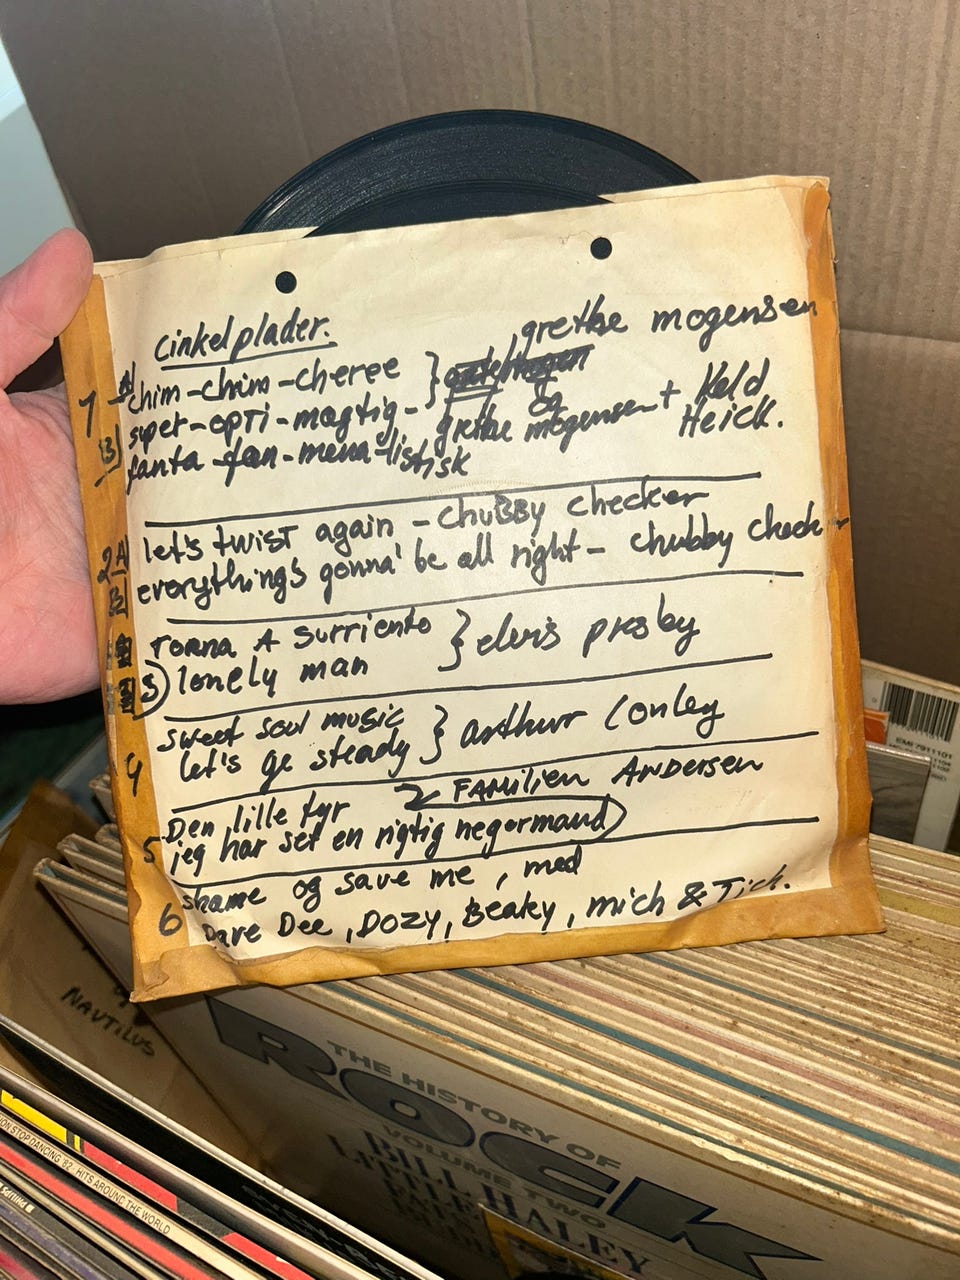 cinkelplader.
grethe mogensen
1 A chim-chim-cheree }
super-opti-magtig- og
B fanta-fan-mena-listisk grethe mogensen + Keld Heick.
2 A let's twist again - chubby checker
B everything's gonna' be all right - chubby check
Torna A Surriento } elvis presby
3) lonely man
4 sweet soul music } arthur Conley
let's ge steady
5 Den lille fyr FAMILIEN ANDERSEN
jeg har set en rigtig negermand
6 shame og save me, med
Dave Dee, Dozy, Beaky, mich & Tich.
NAUTILUS
EMI 7911101
THE HISTORY OF
ROCK
VOLUME TWO
BILL HALEY
LITTLE
NON STOP DANCING '82 - HITS AROUND THE WORLD